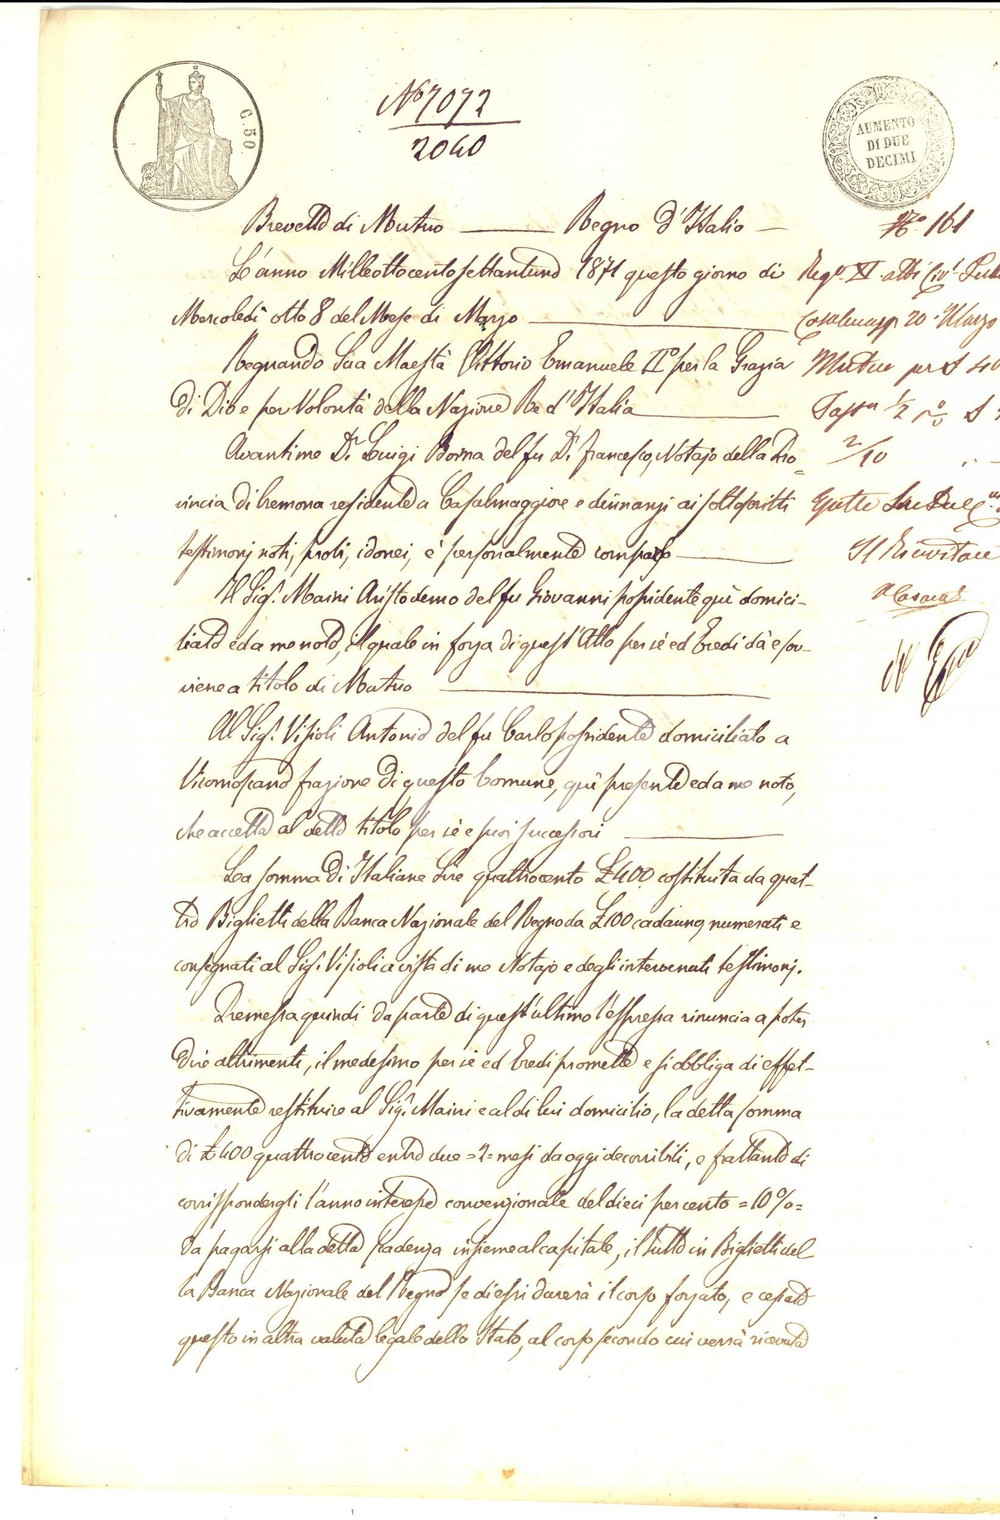 C. 50
No 7072
2040
AUMENTO
DI DUE
DECIMI
Brevetto di Mutuo Regno d'Italia
No. 161
L'anno Milleottocentosettantuno 1871 questo giorno di
Mercoledì otto 8 del Mese di Marzo
Regnando Sua Maestà Vittorio Emanuele II° per la Grazia
di Dio e per Volontà della Nazione Re d'Italia
Avanti me Dr. Luigi Borna del fu Dr. Francesco, Notajo della Pro=
vincia di Cremona residente a Casalmaggiore e dinnanzi ai sottoscritti
testimonj noti, probi, idonei, e personalmente comparso
Il Sigr. Maini Aristodemo del fu Giovanni possidente quì domici-
liato e da me noto, il quale in forza di quest'Atto per sè ed Eredi dà e sov-
viene a titolo di Mutuo
Al Sigr. Visioli Antonio del fu Carlo possidente domiciliato a
Vicomoscano frazione di questo Comune, quì presente e da me noto,
che accetta al detto titolo per sè e suoi successori
La somma di Italiane Lire quattrocento £ 400. costituita da quat-
tro Biglietti della Banca Nazionale del Regno da £ 100 cadauno, numerati e
consegnati al Sigr. Visioli a vista di me Notajo e degli intervenuti testimonj.
Premessa quindi da parte di quest'ultimo l'espressa rinuncia a poter
dire altrimenti, il medesimo per sè ed Eredi promette e si obbliga di effet-
tivamente restituire al Sigr. Maini e al di lui domicilio, la detta somma
di £ 400 quattrocento entro due =2= mesi da oggi decorribili, e frattanto di
corrispondergli l'annuo interesse convenzionale del dieci per cento =10%=
da pagarsi alla detta scadenza insieme al capitale, il tutto in Biglietti del-
la Banca Nazionale del Regno se di essi durerà il corso forzato, e cessato
questo in altra valuta legale dello Stato, al corso secondo cui verrà ricevuta
Casalmagg. 20 Marzo
Mutuo per £ 400
Tassa 1/2 %
2/10
Il Ricevitore